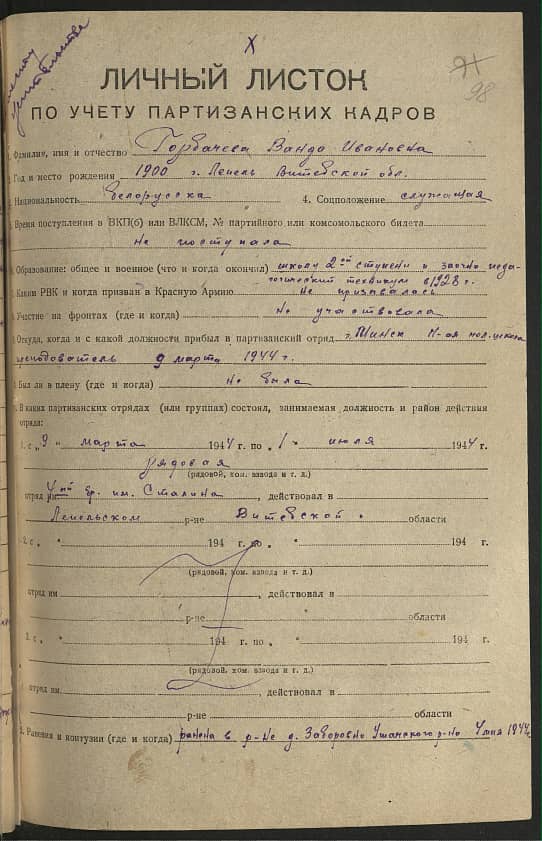 X
98
ЛИЧНЫЙ ЛИСТОК
ПО УЧЕТУ ПАРТИЗАНСКИХ КАДРОВ
Фамилия, имя и отчество Горбачева Ванда Ивановна
Год и место рождения 1900 г. Лепель Витебской обл.
Национальность белорусска 4. Соцположение служащая
Время поступления в ВКП(б) или ВЛКСМ, № партийного или комсомольского билета
не поступала
Образование: общее и военное (что и когда окончил) школу 2ой ступени и заочно педа-
гогический техникум в 1928 г.
Каким РВК и когда призван в Красную Армию не призывалась
Участие на фронтах (где и когда) не участвовала
Откуда, когда и с какой должности прибыл в партизанский отряд г. Минск
преподаватель 9 марта 1944 г.
Был ли в плену (где и когда) не была
В каких партизанских отрядах (или группах) состоял, занимаемая должность и район действия
отряда:
1. с „9" марта 1944 г. по „1" июля 1944 г.
рядовая
(рядовой, ком. взвода и т. д.)
отряд им. 4ый бр. им. Сталина, действовал в
Лепельском р-не Витебской области
2. с „ " 194 г. по „ " 194 г.
(рядовой, ком. взвода и т. д.)
отряд им , действовал в
р-не области
3. с „ " 194 г. по „ " 194 г.
(рядовой, ком. взвода и т. д.)
отряд им. , действовал в
р-не области
Ранения и контузии (где и когда) ранена в р-не д. Заборовно Ушачского р-на 4 мая 1944